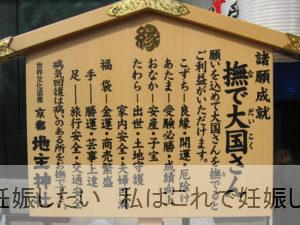 縁
諸願成就
撫で大国さん
だいこく
願いを込めて大国さんを撫でると
ご利益がいただけます。
こずち―良縁・開運・厄除け
あたま―受験必勝・成績向上
おなか―安産・子宝
たわら―出世・土地守護
家内安全・夫婦円満
福袋―金運・商売繁盛
手―勝運・芸事上達
足―旅行安全・交通安全
病気回復は病いのある所を撫でます。
世界文化遺産 京都 地主神社
妊娠したい 私はこれで妊娠し